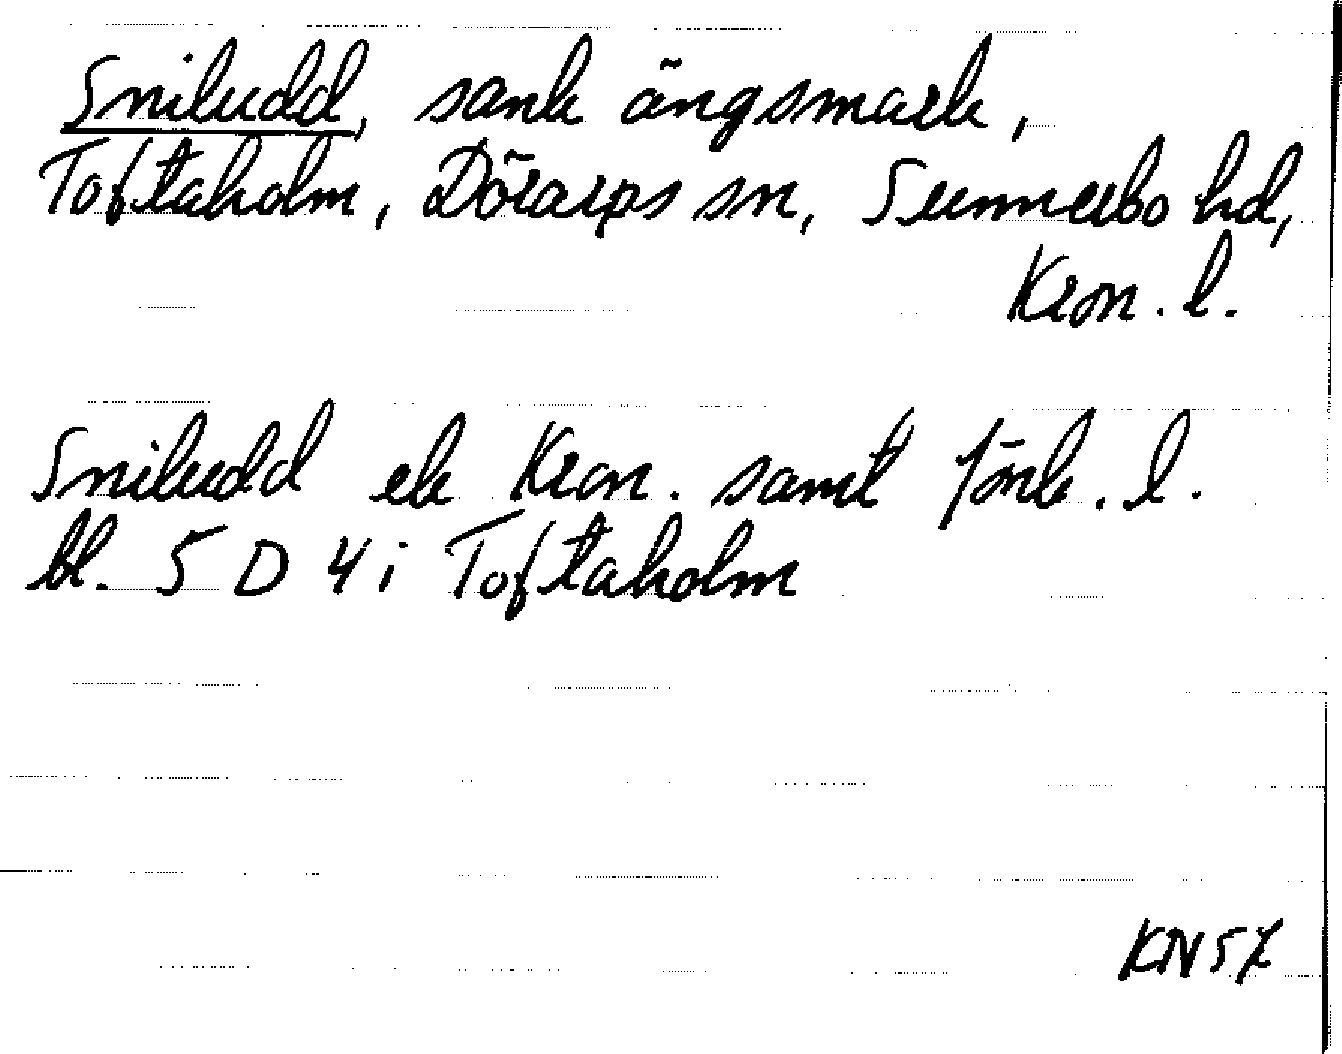 Sniludd, sank ängsmark,
Toftaholm, Dörarps sn, Sunnerbo hd,
Kron. l.
Sniludd ek Kron. samt Jönk. l.
bl. 5 D 4 i Toftaholm
KN57